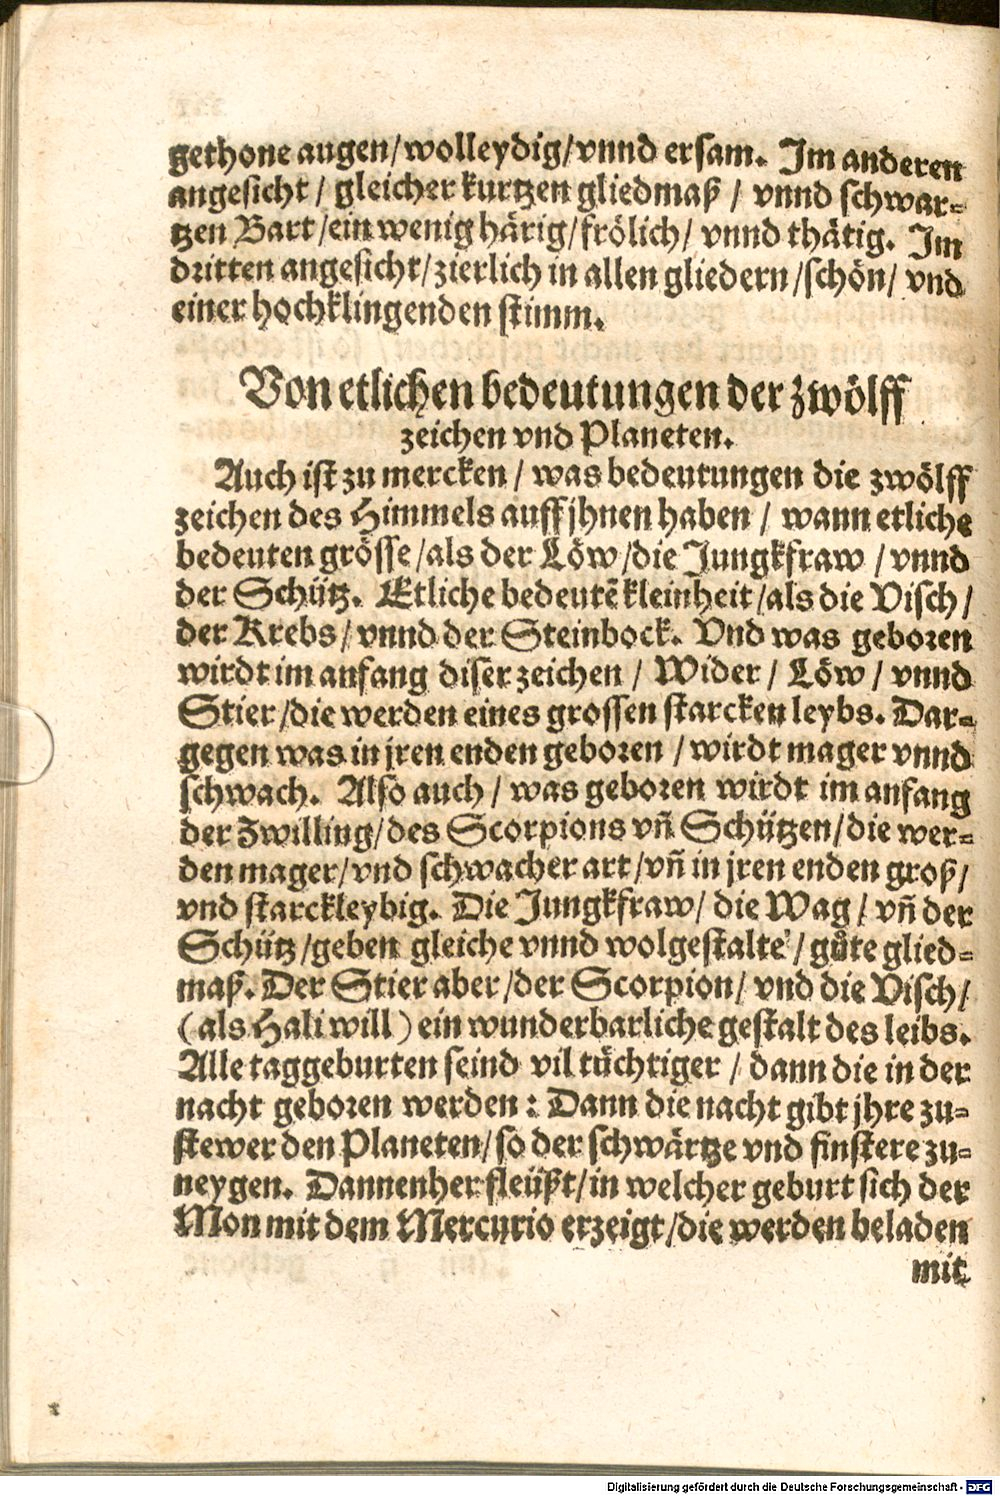 gethone augen/wolleydig/vnnd ersam. Im anderen
angesicht / gleicher kurtzen gliedmaß / vnnd schwar-
tzen Bart /ein wenig härig/frölich/ vnnd thätig. Im
dritten angesicht/zierlich in allen gliedern /schön/ vnd
einer hochklingenden stimm.
Von etlichen bedeutungen der zwölff
zeichen vnd Planeten.
Auch ist zu mercken / was bedeutungen die zwölff
zeichen des Himmels auff jhnen haben / wann etliche
bedeuten grösse /als der Löw /die Jungkfraw / vnnd
der Schütz. Etliche bedeutẽ kleinheit /als die Visch /
der Krebs / vnnd der Steinbock. Vnd was geboren
wirdt im anfang diser zeichen / Wider / Löw / vnnd
Stier /die werden eines grossen starcken leybs. Dar-
gegen was in jren enden geboren / wirdt mager vnnd
schwach. Also auch / was geboren wirdt im anfang
der Zwilling/des Scorpions vñ Schützen/die wer-
den mager/vnd schwacher art/vñ in jren enden groß/
vnd starckleybig. Die Jungkfraw/ die Wag / vñ der
Schütz /geben gleiche vnnd wolgestalte / gůte glied-
maß. Der Stier aber /der Scorpion/ vnd die Visch/
(als Hali will) ein wunderbarliche gestalt des leibs.
Alle taggeburten seind vil tüchtiger / dann die in der
nacht geboren werden : Dann die nacht gibt jhre zu-
stewer den Planeten/so der schwärtze vnd finstere zu-
neygen. Dannenher fleüßt/in welcher geburt sich der
Mon mit dem Mercurio erzeigt /die werden beladen
mit
Digitalisierung gefördert durch die Deutsche Forschungsgemeinschaft - DFG